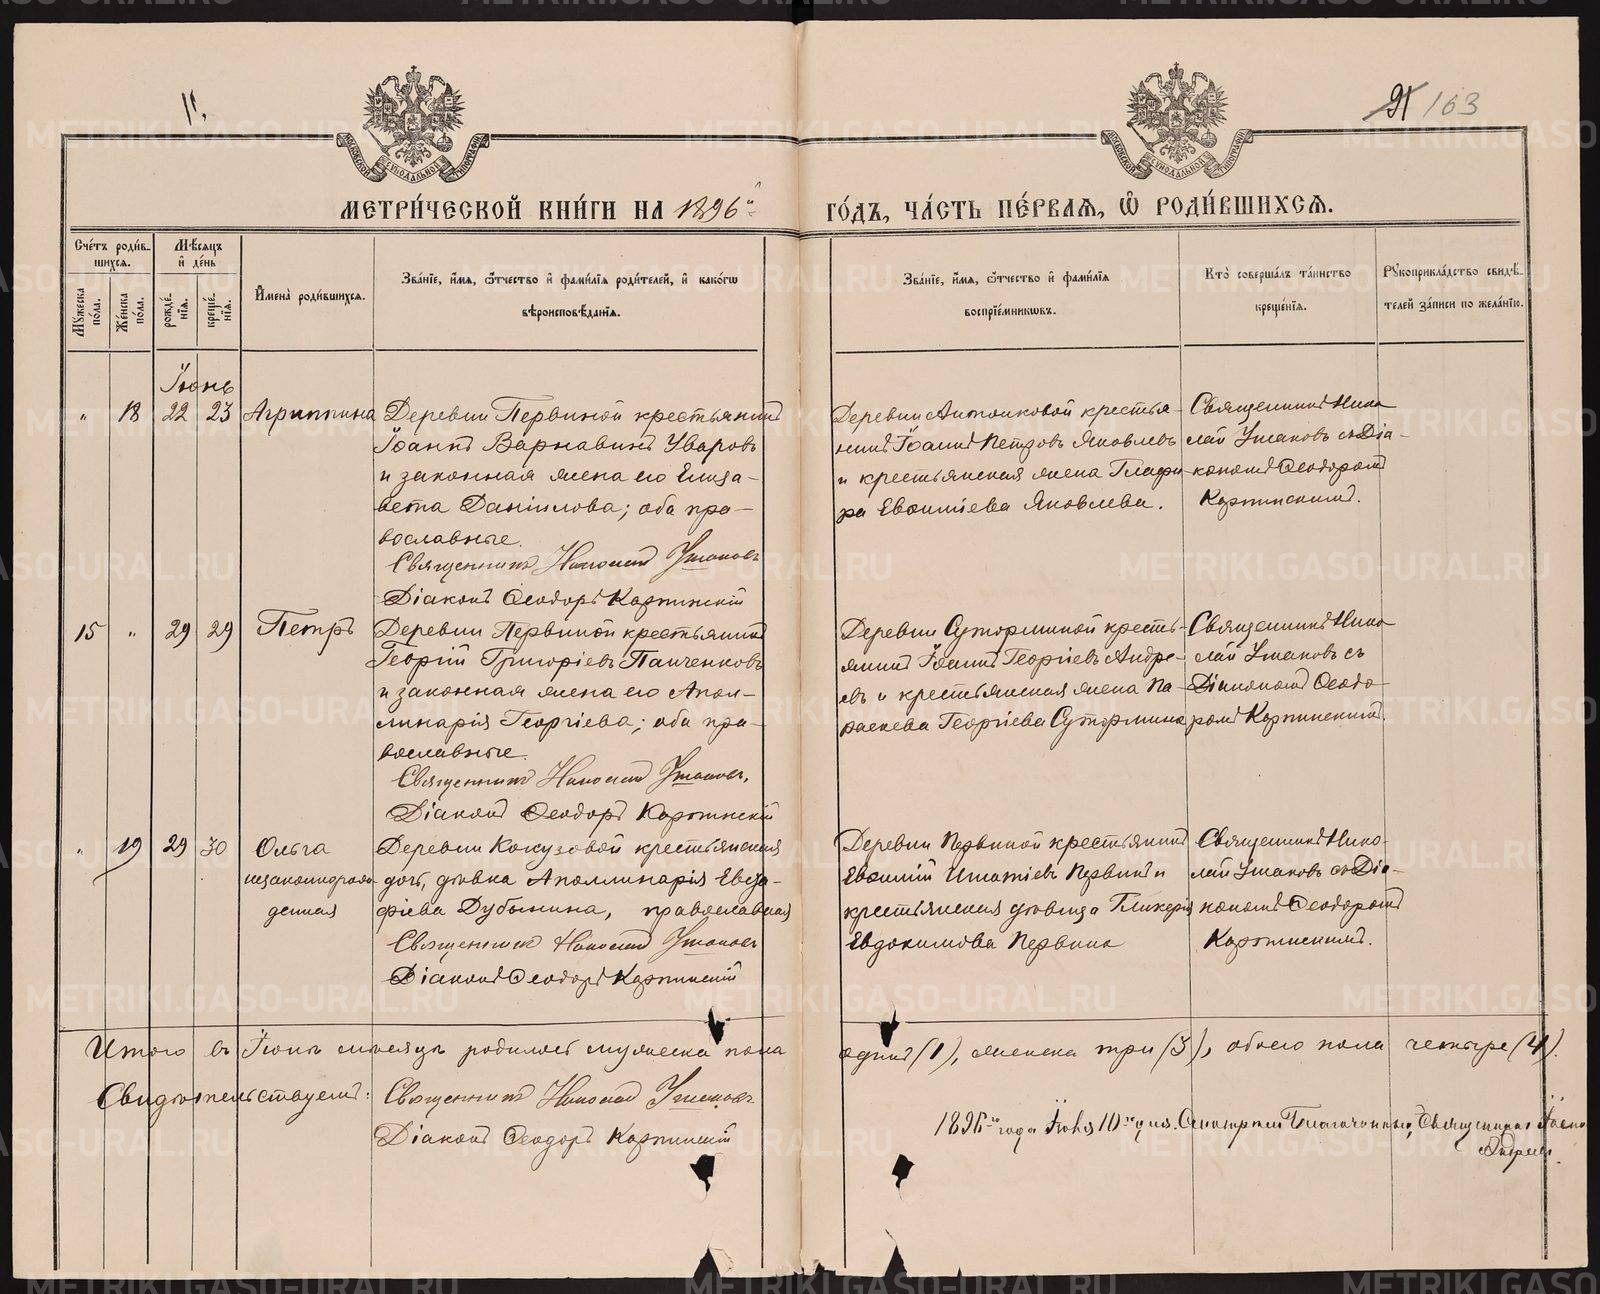 11.
91 163
МЕТРИ́ЧЕСКОЙ КНИ́ГИ НА 1896й
ГО́ДЪ, ЧА́СТЬ ПЕ́РВАЯ, Ѿ РОДИ́ВШИХСѦ.
Сче́тъ роди́в-
шихсѧ.
Мѣсѧцъ
и҆ де́нь
Мꙋжеска
по́ла.
Же́нска
по́ла.
рожде́-
нїѧ.
креще́-
нїѧ.
И҆мена̀ роди́вшихсѧ.
Зва́нїе, и҆́мѧ, ѻ҆́тчество и҆ фами́лїѧ роди́телей, и҆ како́гѡ
вѣроисповѣ́данїѧ.
Зва́нїе, и҆́мѧ, ѻ҆́тчество и҆ фами́лїѧ
воспрїе́мникѡвъ.
Кто̀ соверша́лъ та́инство
креще́нїѧ.
Рꙋкоприкла́дство свидѣ́-
телей за́писи по жела́нїю.
Іюнь
" 18 22 23 Агриппина
Деревни Первиной крестьянинъ
Іоаннъ Варнавинъ Уваровъ
и законная жена его Елиза-
вета Даніилова; оба пра-
вославные.
Священникъ Николай Ушаковъ
Діаконъ Ѳеодоръ Карпинскій
Деревни крестья-
нинъ Іоаннъ Петровъ Яковлевъ
и крестьянская жена Глафи-
ра Евѳиміева Яковлева.
Священникъ Нико
лай Ушаковъ съ Діа-
кономъ Ѳеодоромъ
Карпинскимъ.
15 " 29 29 Петръ
Деревни Первиной крестьянинъ
Георгій Григоріевъ Панченковъ
и законная жена его Апол-
линарія Георгіева; оба пра-
вославные.
Священникъ Николай Ушаковъ,
Діаконъ Ѳеодоръ Карпинскій
Деревни Суторминой кресть-
янинъ Іоаннъ Георгіевъ Андре-
евъ и крестьянская жена Па-
раскева Георгіева Сутормина
Священникъ Нико
лай Ушаковъ съ
Діакономъ Ѳеодо-
ромъ Карпинскимъ.
" 19 29 30 Ольга
незаконнорож-
денная
Деревни Кокузовой крестьянская
дочь, дѣвка Аполлинарія Евста-
фіева Дубынина, православная
Священникъ Николай Ушаковъ
Діаконъ Ѳеодоръ Карпинскій
Деревни Первиной крестьянинъ
Евѳимій Игнатіевъ Первинъ и
крестьянская дѣвица Гликерія
Евдокимова Первина
Священникъ Нико-
лай Ушаковъ съ Діа-
кономъ Ѳеодоромъ
Карпинскимъ.
Итого въ Іюнѣ мѣсяцѣ родилось мужеска пола
одинъ (1), женска три (3), обоего пола четыре (4).
Свидѣтельствуемъ: Священникъ Николай Ушаковъ
Діаконъ Ѳеодоръ Карпинскій
1896го года Іюля 10го дня. Смотрѣлъ Благочинный, Священникъ Іоаннъ